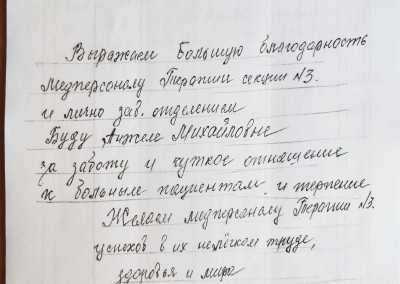 Выражаем большую благодарность
медперсоналу Терапии секции №3.
и лично зав. отделением
Буду Анжеле Михайловне
за заботу и чуткое отношение
к больным пациентам и терпение
Желаем медперсоналу Терапии №3.
успехов в их нелёгком труде,
здоровья и мира